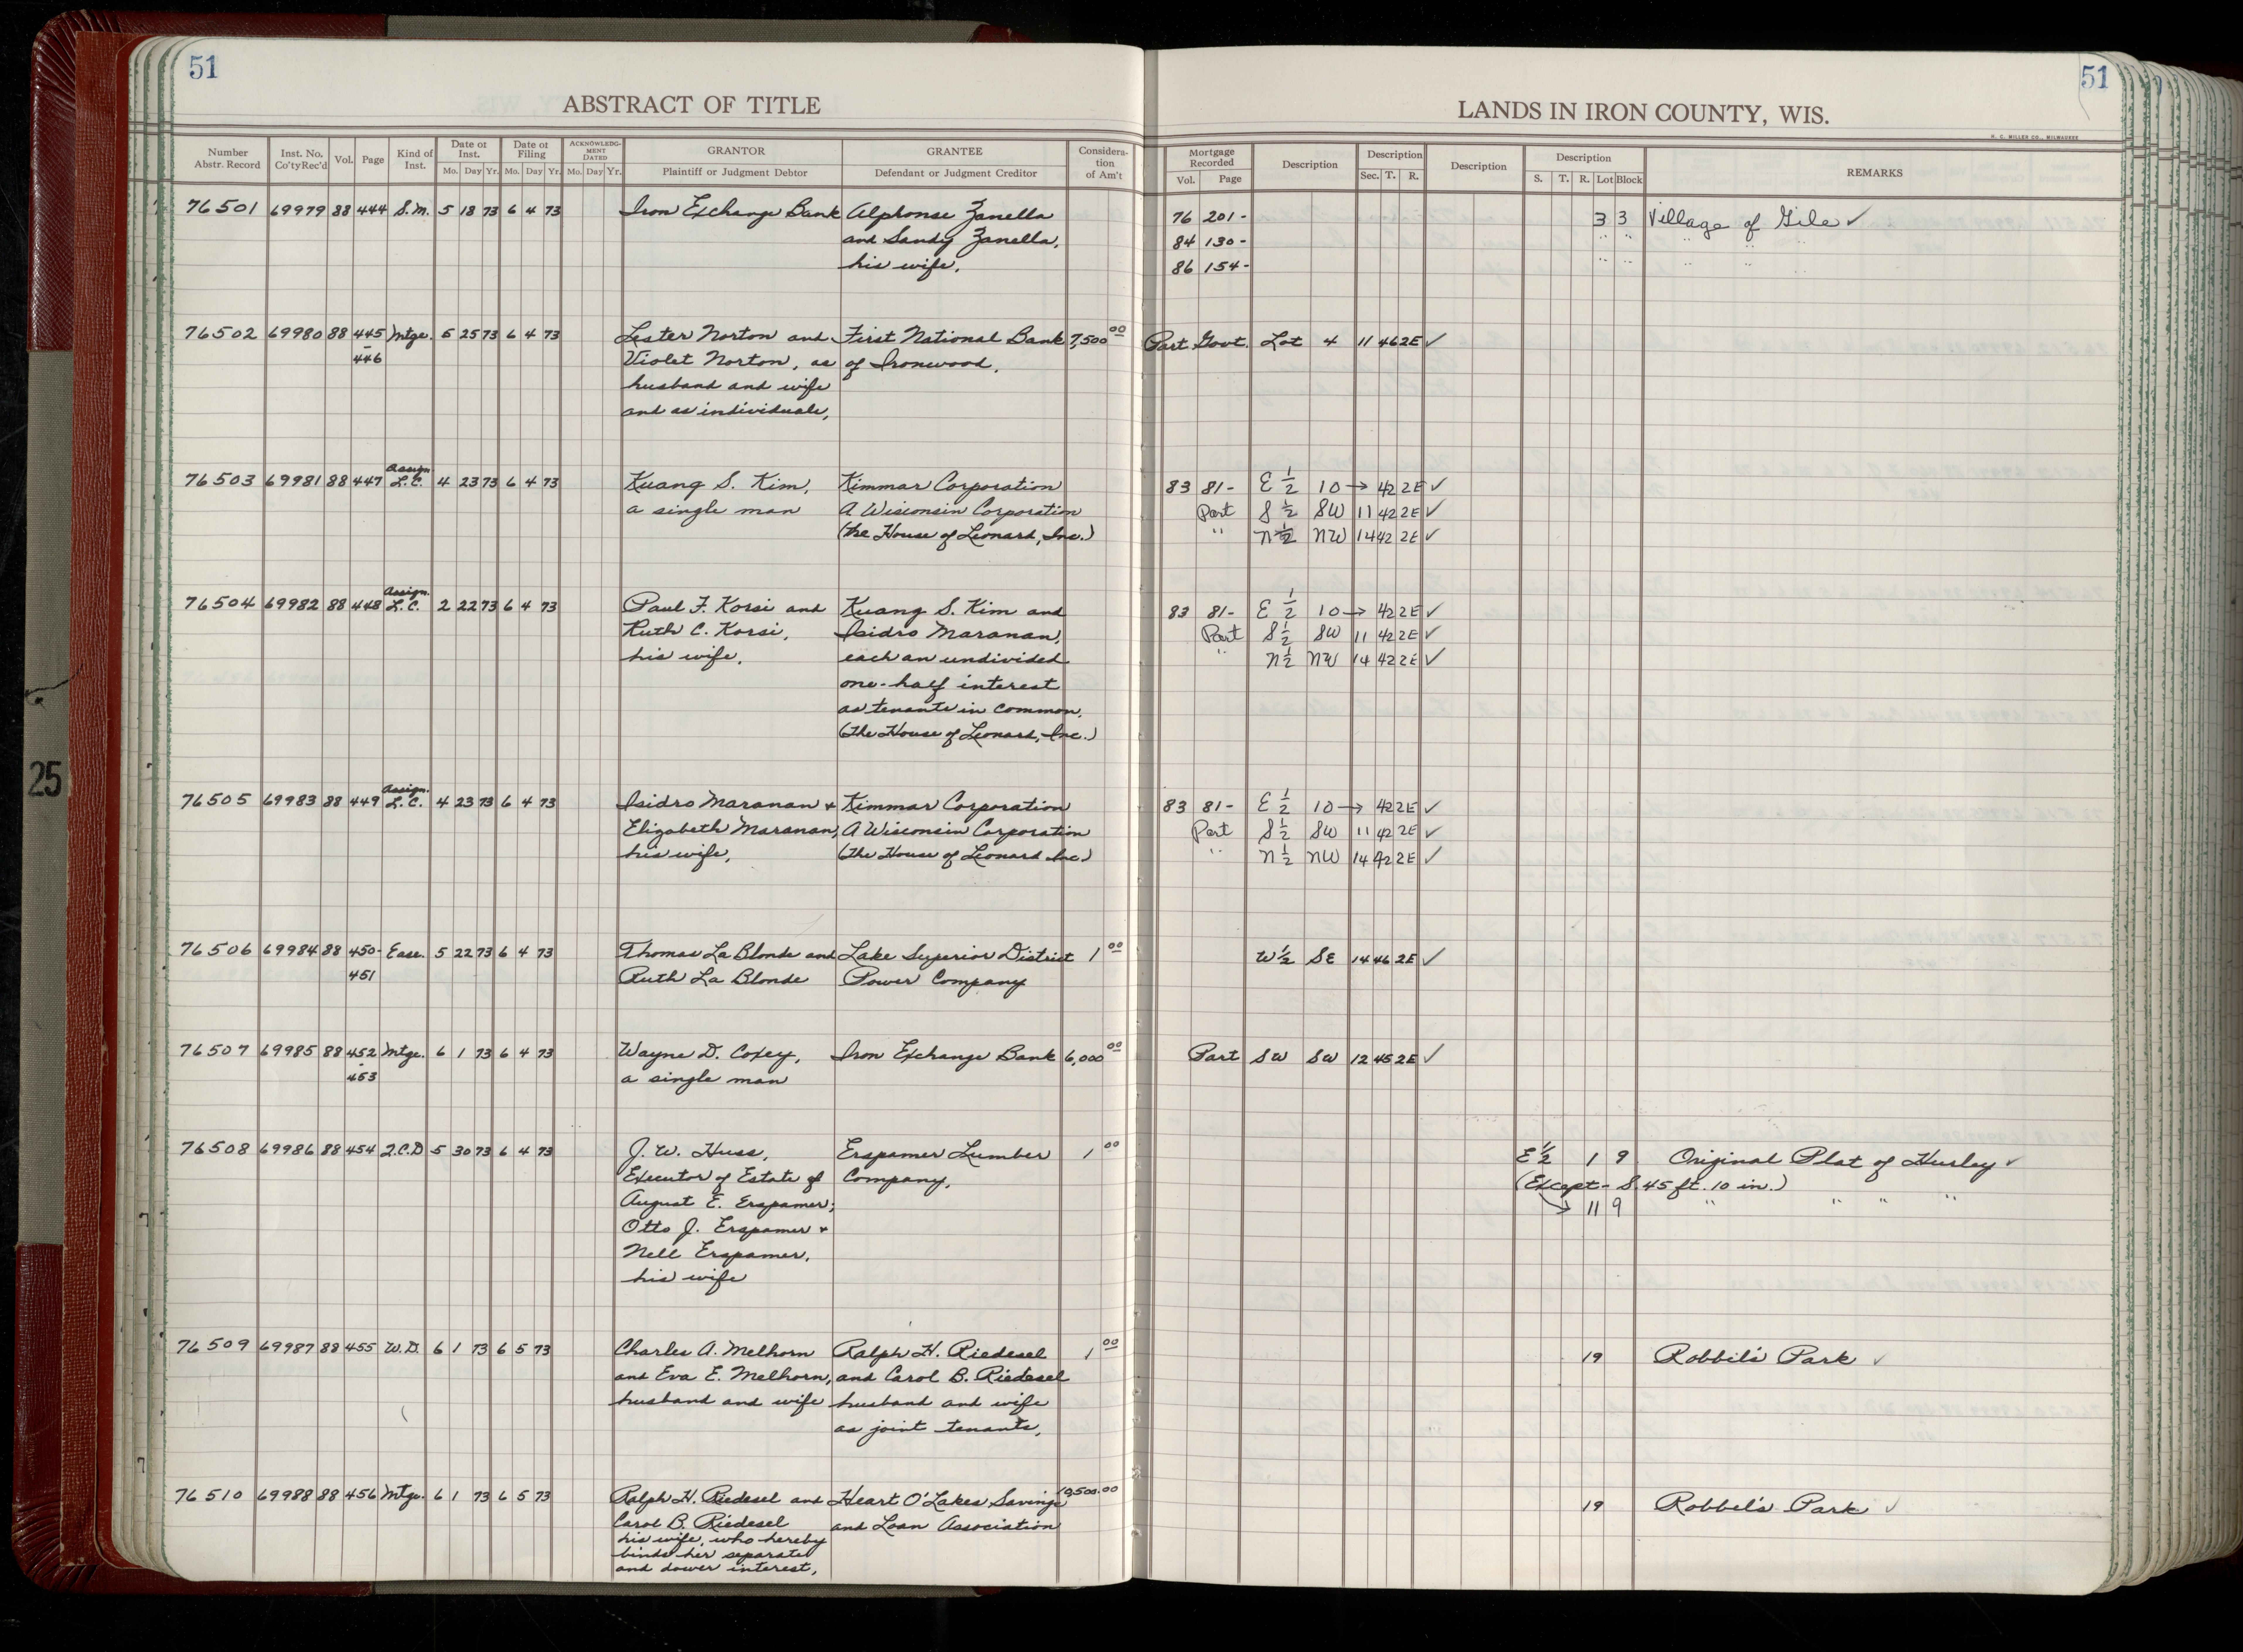 51
51
ABSTRACT OF TITLE
LANDS IN IRON COUNTY, WIS.
H. C. MILLER CO., MILWAUKEE
Number Abstr. Record Inst. No. Co'ty Rec'd Vol. Page Kind of Inst. Date of Inst. Mo. Day Yr. Date of Filing Mo. Day Yr. ACKNOWLEDGMENT DATED Mo. Day Yr. GRANTOR Plaintiff or Judgment Debtor GRANTEE Defendant or Judgment Creditor Consideration of Am't
Mortgage Recorded Vol. Page Description Description Sec. T. R. Description Description S. T. R. Lot Block REMARKS
76501 69979 88 444 S.M. 5 18 73 6 4 73 Iron Exchange Bank Alphonse Zanella 76 201- 3 3 Village of Gile ✓
and Sandy Zanella, 84 130- " " " "
his wife, 86 154- " " " "
76502 69980 88 445 Mtge. 5 25 73 6 4 73 Lester Norton and First National Bank 7,500 00 Part Govt. Lot 4 11 46 2E ✓
-446 Violet Norton, as of Ironwood,
husband and wife
and as individuals,
76503 69981 88 447 Assign. L.C. 4 23 73 6 4 73 Kuang S. Kim, Kimmar Corporation 83 81- E 1/2 10 → 42 2E ✓
a single man A Wisconsin Corporation Part S 1/2 SW 11 42 2E ✓
(the House of Leonard, Inc.) " N 1/2 NW 14 42 2E ✓
76504 69982 88 448 Assign. L.C. 2 22 73 6 4 73 Paul F. Korsi and Kuang S. Kim and 83 81- E 1/2 10 → 42 2E ✓
Ruth C. Korsi, Isidro Maranan, Part S 1/2 SW 11 42 2E ✓
his wife, each an undivided " N 1/2 NW 14 42 2E ✓
one-half interest
as tenants in common,
(the House of Leonard, Inc.)
76505 69983 88 449 Assign. L.C. 4 23 73 6 4 73 Isidro Maranan + Kimmar Corporation 83 81- E 1/2 10 → 42 2E ✓
Elizabeth Maranan, A Wisconsin Corporation Part S 1/2 SW 11 42 2E ✓
his wife, (the House of Leonard Inc) " N 1/2 NW 14 42 2E ✓
25
76506 69984 88 450- Ease. 5 22 73 6 4 73 Thomas La Blonde and Lake Superior District 1 00 W 1/2 SE 14 46 2E ✓
451 Ruth La Blonde Power Company
76507 69985 88 452 Mtge. 6 1 73 6 4 73 Wayne D. Coxey, Iron Exchange Bank 6,000 00 Part SW SW 12 45 2E ✓
-453 a single man
76508 69986 88 454 Q.C.D 5 30 73 6 4 73 J. W. Huss, Erspamer Lumber 1 00 E 1/2 1 9 Original Plat of Hurley ✓
Executor of Estate of Company, (Except - S. 45 ft. 10 in.)
August E. Erspamer; → 11 9 " " " "
Otto J. Erspamer +
Nell Erspamer,
his wife
76509 69987 88 455 W.D. 6 1 73 6 5 73 Charles A. Melhorn Ralph H. Riedesel 1 00 19 Robbil's Park ✓
and Eva E. Melhorn, and Carol B. Riedesel
husband and wife husband and wife
as joint tenants,
76510 69988 88 456 Mtge. 6 1 73 6 5 73 Ralph H. Riedesel and Heart O'Lakes Savings 10,500.00 19 Robbel's Park ✓
Carol B. Riedesel and Loan Association
his wife, who hereby
binds her separate
and dower interest,